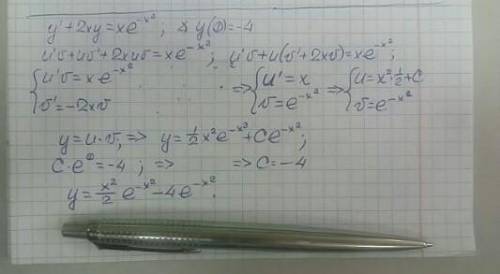 y'+2xy=xe^{-x²}; y(0)=-4
u'v+uv'+2xuv=xe^{-x²}; u'v+u(v'+2xv)=xe^{-x²};
{u'v=xe^{-x²} ⇒ {u'=x ⇒ {u=x²·1/2+C
{v'=-2xv {v=e^{-x²} {v=e^{-x²}
y=u·v, ⇒ y=1/2x²e^{-x²}+Ce^{-x²};
C·e⁰=-4; ⇒ ⇒ C=-4
y=x²/2 e^{-x²}-4e^{-x²}.